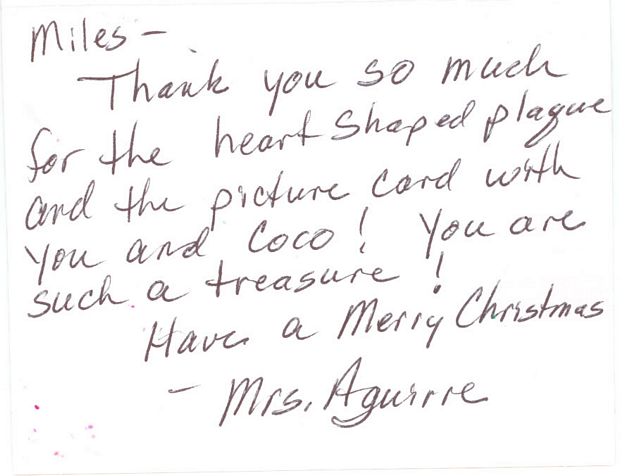 Miles-
Thank you so much
for the heart shaped plaque
and the picture card with
you and Coco! You are
such a treasure!
Have a Merry Christmas
- Mrs. Aguirre